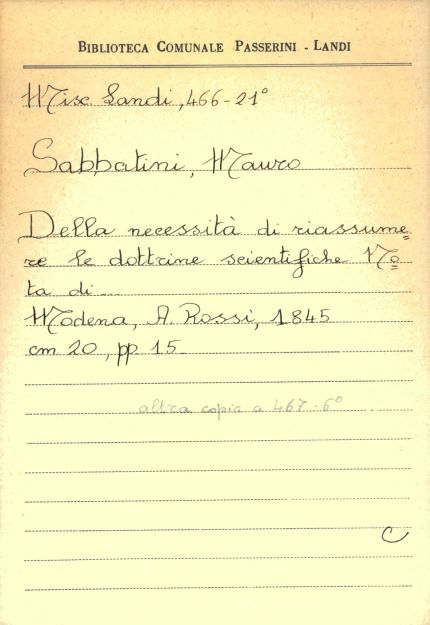 BIBLIOTECA COMUNALE PASSERINI - LANDI
Misc Landi, 466-21°
Sabbatini, Mauro
Della necessità di riassume=
re le dottrine scientifiche No=
ta di...
Modena, A. Rossi, 1845
cm 20, pp 15
altra copia a 467-6°
C